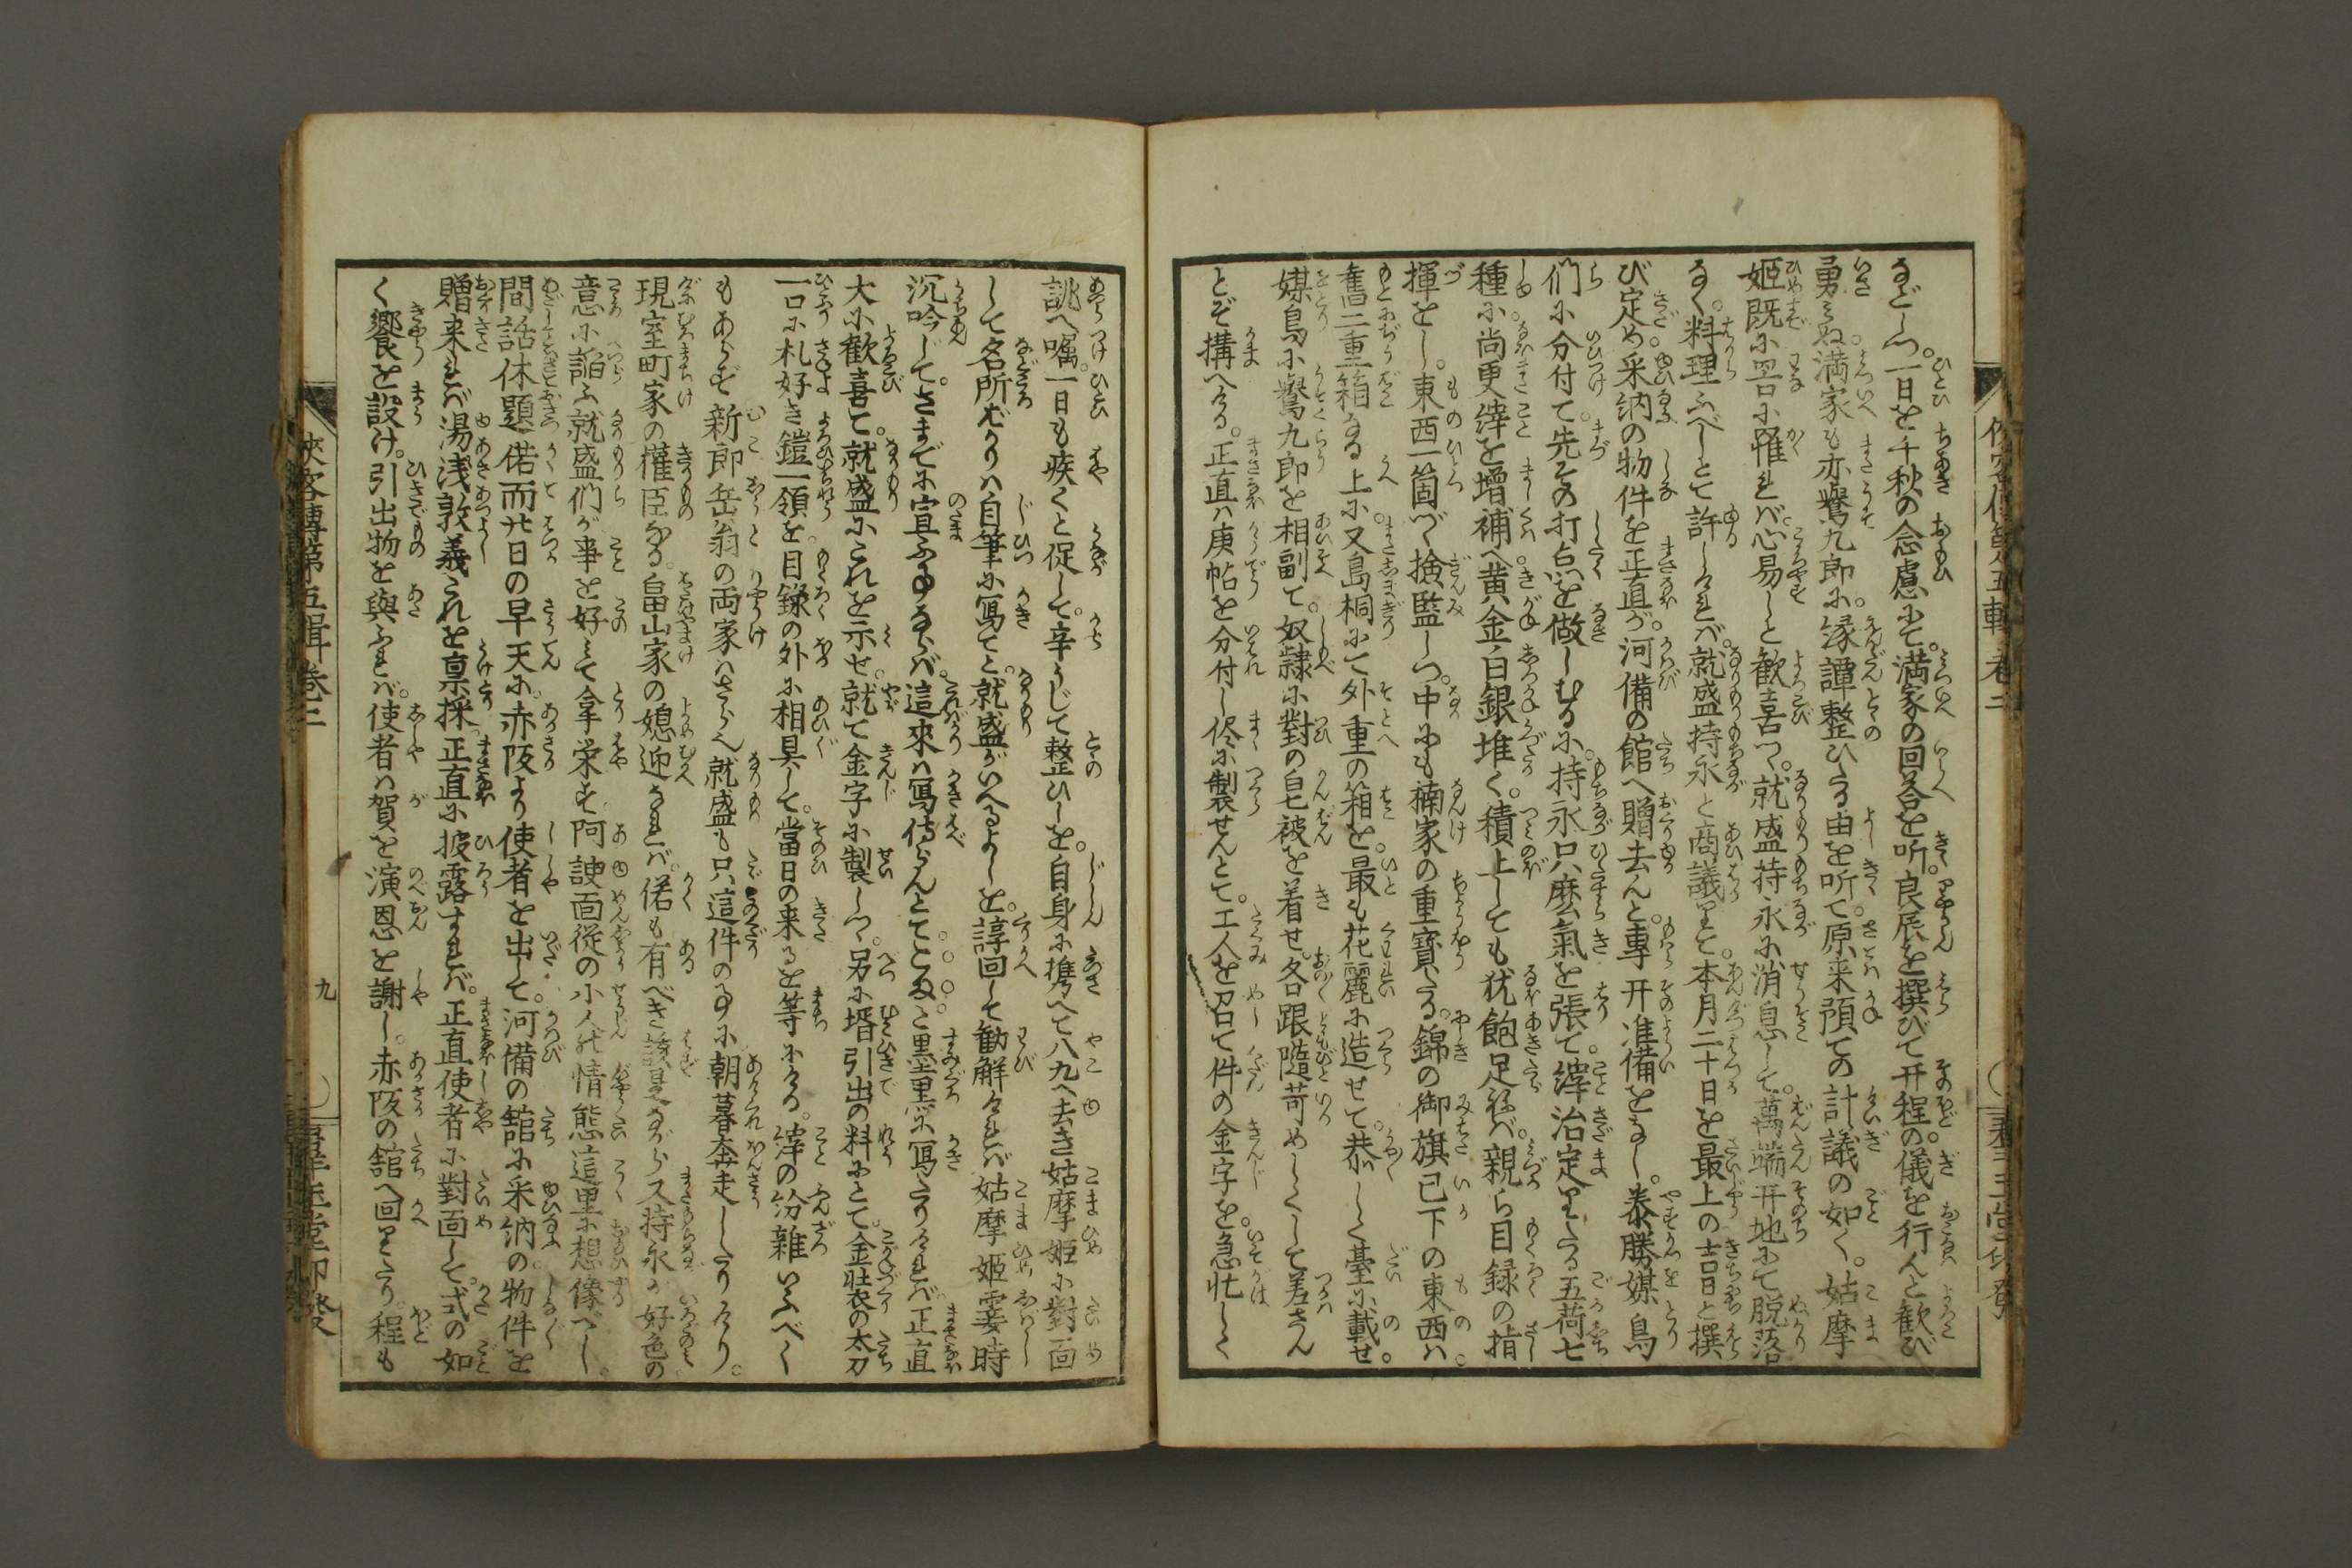 などしつ。一日を千秋の念慮にて。満家の回答を听。良辰を撰びて开程の儀を行んと歓び
勇みぬ。満家も亦鷲九郎に。縁譚整ひたる由を听て。原来預ての計議の如く。姑摩
姫既に罟に罹れば。心易しと歓喜つ。就盛持永に消息して。萬端开地にて脱落
なく。料理ふべしとて許しければ。就盛持永と商議りて。本月二十日を最上の吉日と撰
び定め。采納の物件を正直が。河備の館へ贈去んと。専开准備をなし。泰勝媒鳥
们に分付て。先その打点を做しむるに。持永只麽氣を張て。縡治定りたる五荷七
種に。尚更縡を增補へ。黄金白銀堆く。積上しても犹飽足ねば。親ら目録の指
揮をし。東西一箇づゝ撿監しつ。中にも楠家の重寳たる。錦の御旗已下の東西は。
舊二重箱なる上に。又島桐にて外重の箱を。最も花麗に造せて。恭しく臺に載せ。
媒鳥に鷲九郎を相副て。奴隷に對の皂被を着せ。各跟随苛めしくして差さん
とぞ搆へける。正直は庚帖を分付し終に製せんとて。工人を召て件の金字を。急忙しく
誂へ嘱。一日も疾くと促して。辛うじて整ひしを。自身に携へて八九へ去き姑摩姫に對面
して名所ばかりは自筆に寫てと。就盛がいへるよしを。諄回して勧解ければ姑摩姫霎時
沉吟じて。さまでに宣ふ事ならば。這來は寫侍らんとてこま〇〇と墨黒に寫たりければ。正直
大に歓喜て。就盛にこれを示せ。就て金字に製しつ。另に壻引出の料にとて。金壮衣の太刀
一口に札好き鎧一領を。目録の外に相具して。當日の来るを等にける。縡の紛雜いふべく
もあらず。新郎岳翁の両家はさら也。就盛も只這件の事に朝暮奔走したりけり。
現室町家の權臣なる。畠山家の媳迎なれば。偌も有べき筈ながら又持永が好色の
意に諂ふ就盛们が事を好みて拿栄す阿諛面従の小人の情態這里に想像べし。
間話休題偌而廿日の早天に。赤阪より使者を出して。河備の舘に采納の物件を
贈来れば湯浅敦義これを禀採。正直に披露すれば。正直使者に對面して。式の如
く饗を設け。引出物を與ふれば。使者は賀を演恩を謝し。赤阪の舘へ回りたり。程も
俠客傳第五輯巻三
九